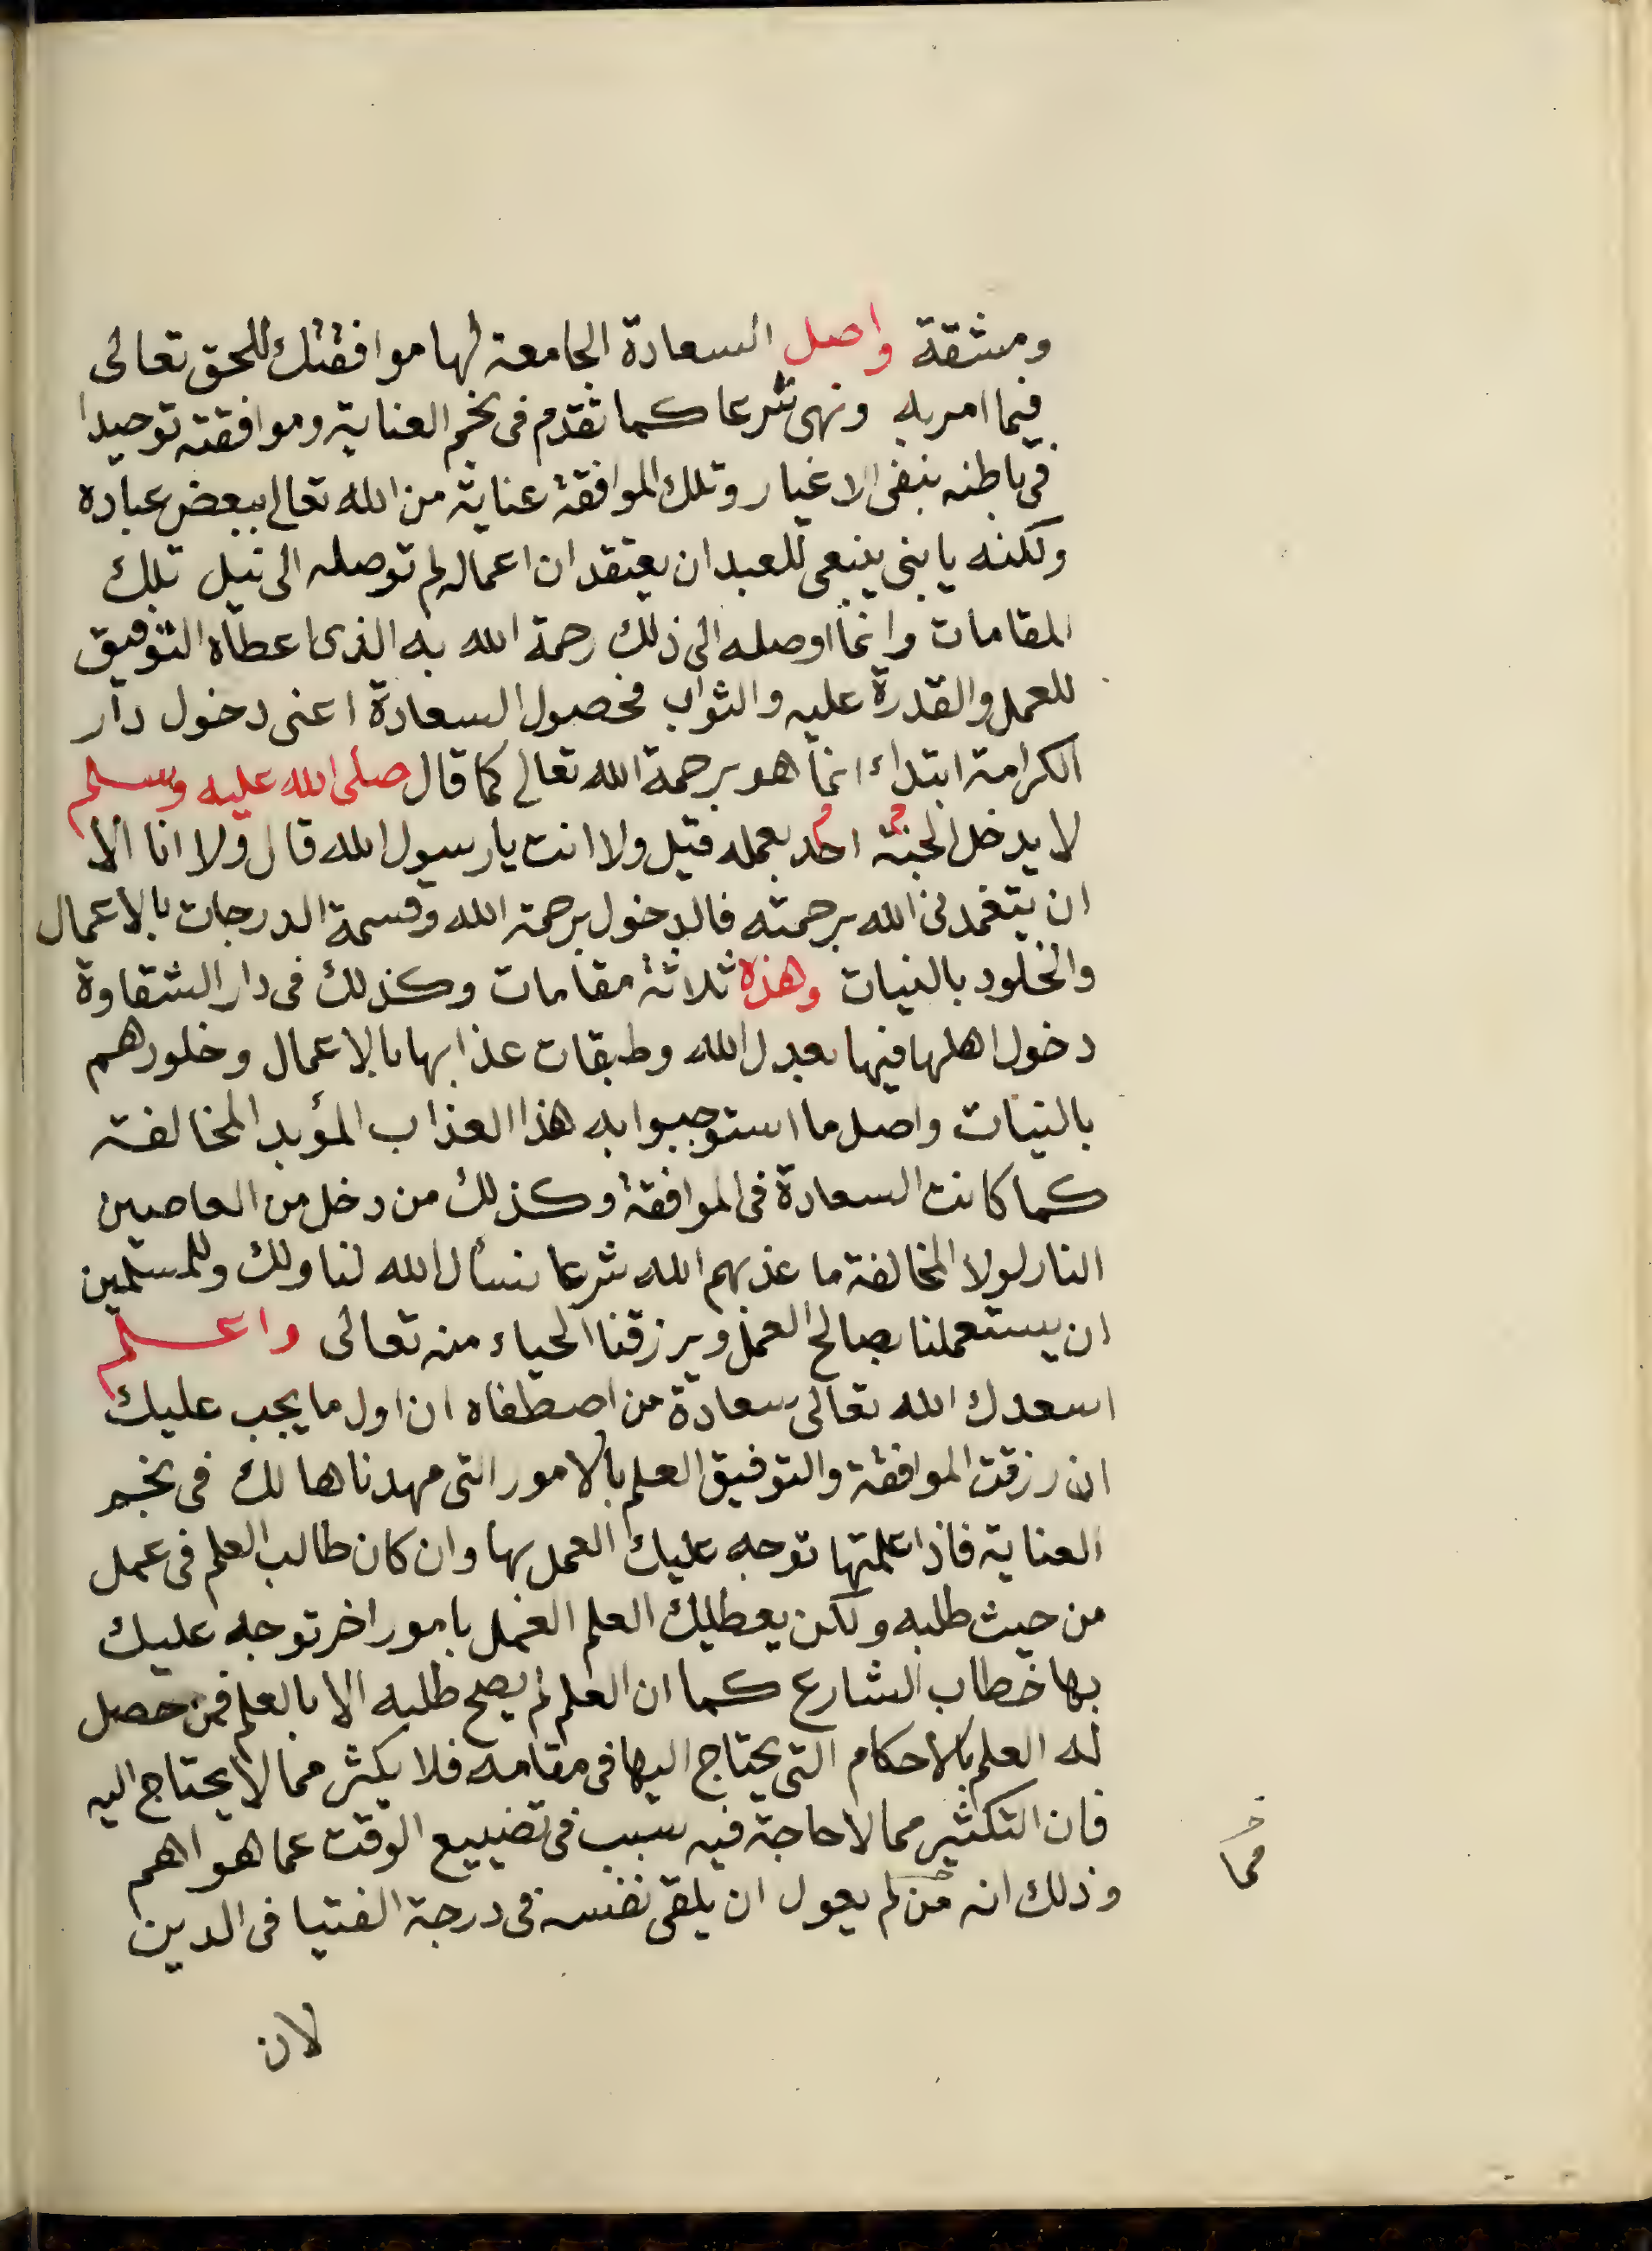 ومشقة واصل السعادة الجامعة لها موافقتك للحق تعالى
فيما امر به ونهى شرعا كما تقدم فى نجم العناية وموافقته توحيدا
فى باطنه بنفى الاغيار وتلك الموافقة عناية من الله تعالى ببعض عباده
ولكنه يا بنى ينبغى للعبد ان يعتقد ان اعماله لم توصله الى نيل تلك
المقامات وانما اوصله الى ذلك رحمة الله به الذى اعطاه التوفيق
للعمل والقدرة عليه والثواب فحصول السعادة اعنى دخول دار
الكرامة ابتداء انما هو برحمة الله تعالى كما قال صلى الله عليه وسلم
لا يدخل الجنة احد بعمله قيل ولا انت يا رسول الله قال ولا انا الا
ان يتغمدنى الله برحمته فالدخول برحمة الله وقسمة الدرجات بالاعمال
والخلود بالنيات وهذه ثلاثة مقامات وكذلك فى دار الشقاوة
دخول اهلها فيها بعدل الله وطبقات عذابها بالاعمال وخلودهم
بالنيات واصل ما استوجبوا به هذا العذاب المؤبد المخالفة
كما كانت السعادة فى الموافقة وكذلك من دخل من العاصين
النار لولا المخالفة ما عذبهم الله شرعا نسأل الله لنا ولك وللمسلمين
ان يستعملنا بصالح العمل ويرزقنا الحياء منه تعالى واعلم
اسعدك الله تعالى سعادة من اصطفاه ان اول ما يجب عليك
ان رزقت الموافقة والتوفيق العلم بالامور التى مهدناها لك فى نجم
العناية فاذا علمتها توجه عليك العمل بها وان كان طالب العلم فى عمل
من حيث طلبه ولكن يعطيك العلم العمل بامور اخر توجه عليك
بها خطاب الشارع كما ان العلم لم يصح طلبه الا بالعلم فمن حصل
له العلم بالاحكام التى يحتاج اليها فى مقامه فلا يكثر مما لا يحتاج اليه
فان التكثير مما لا حاجة فيه سبب فى تضييع الوقت عما هو اهم
وذلك انه من لم يعول ان يلقى نفسه فى درجة الفتيا فى الدين
مما
لان